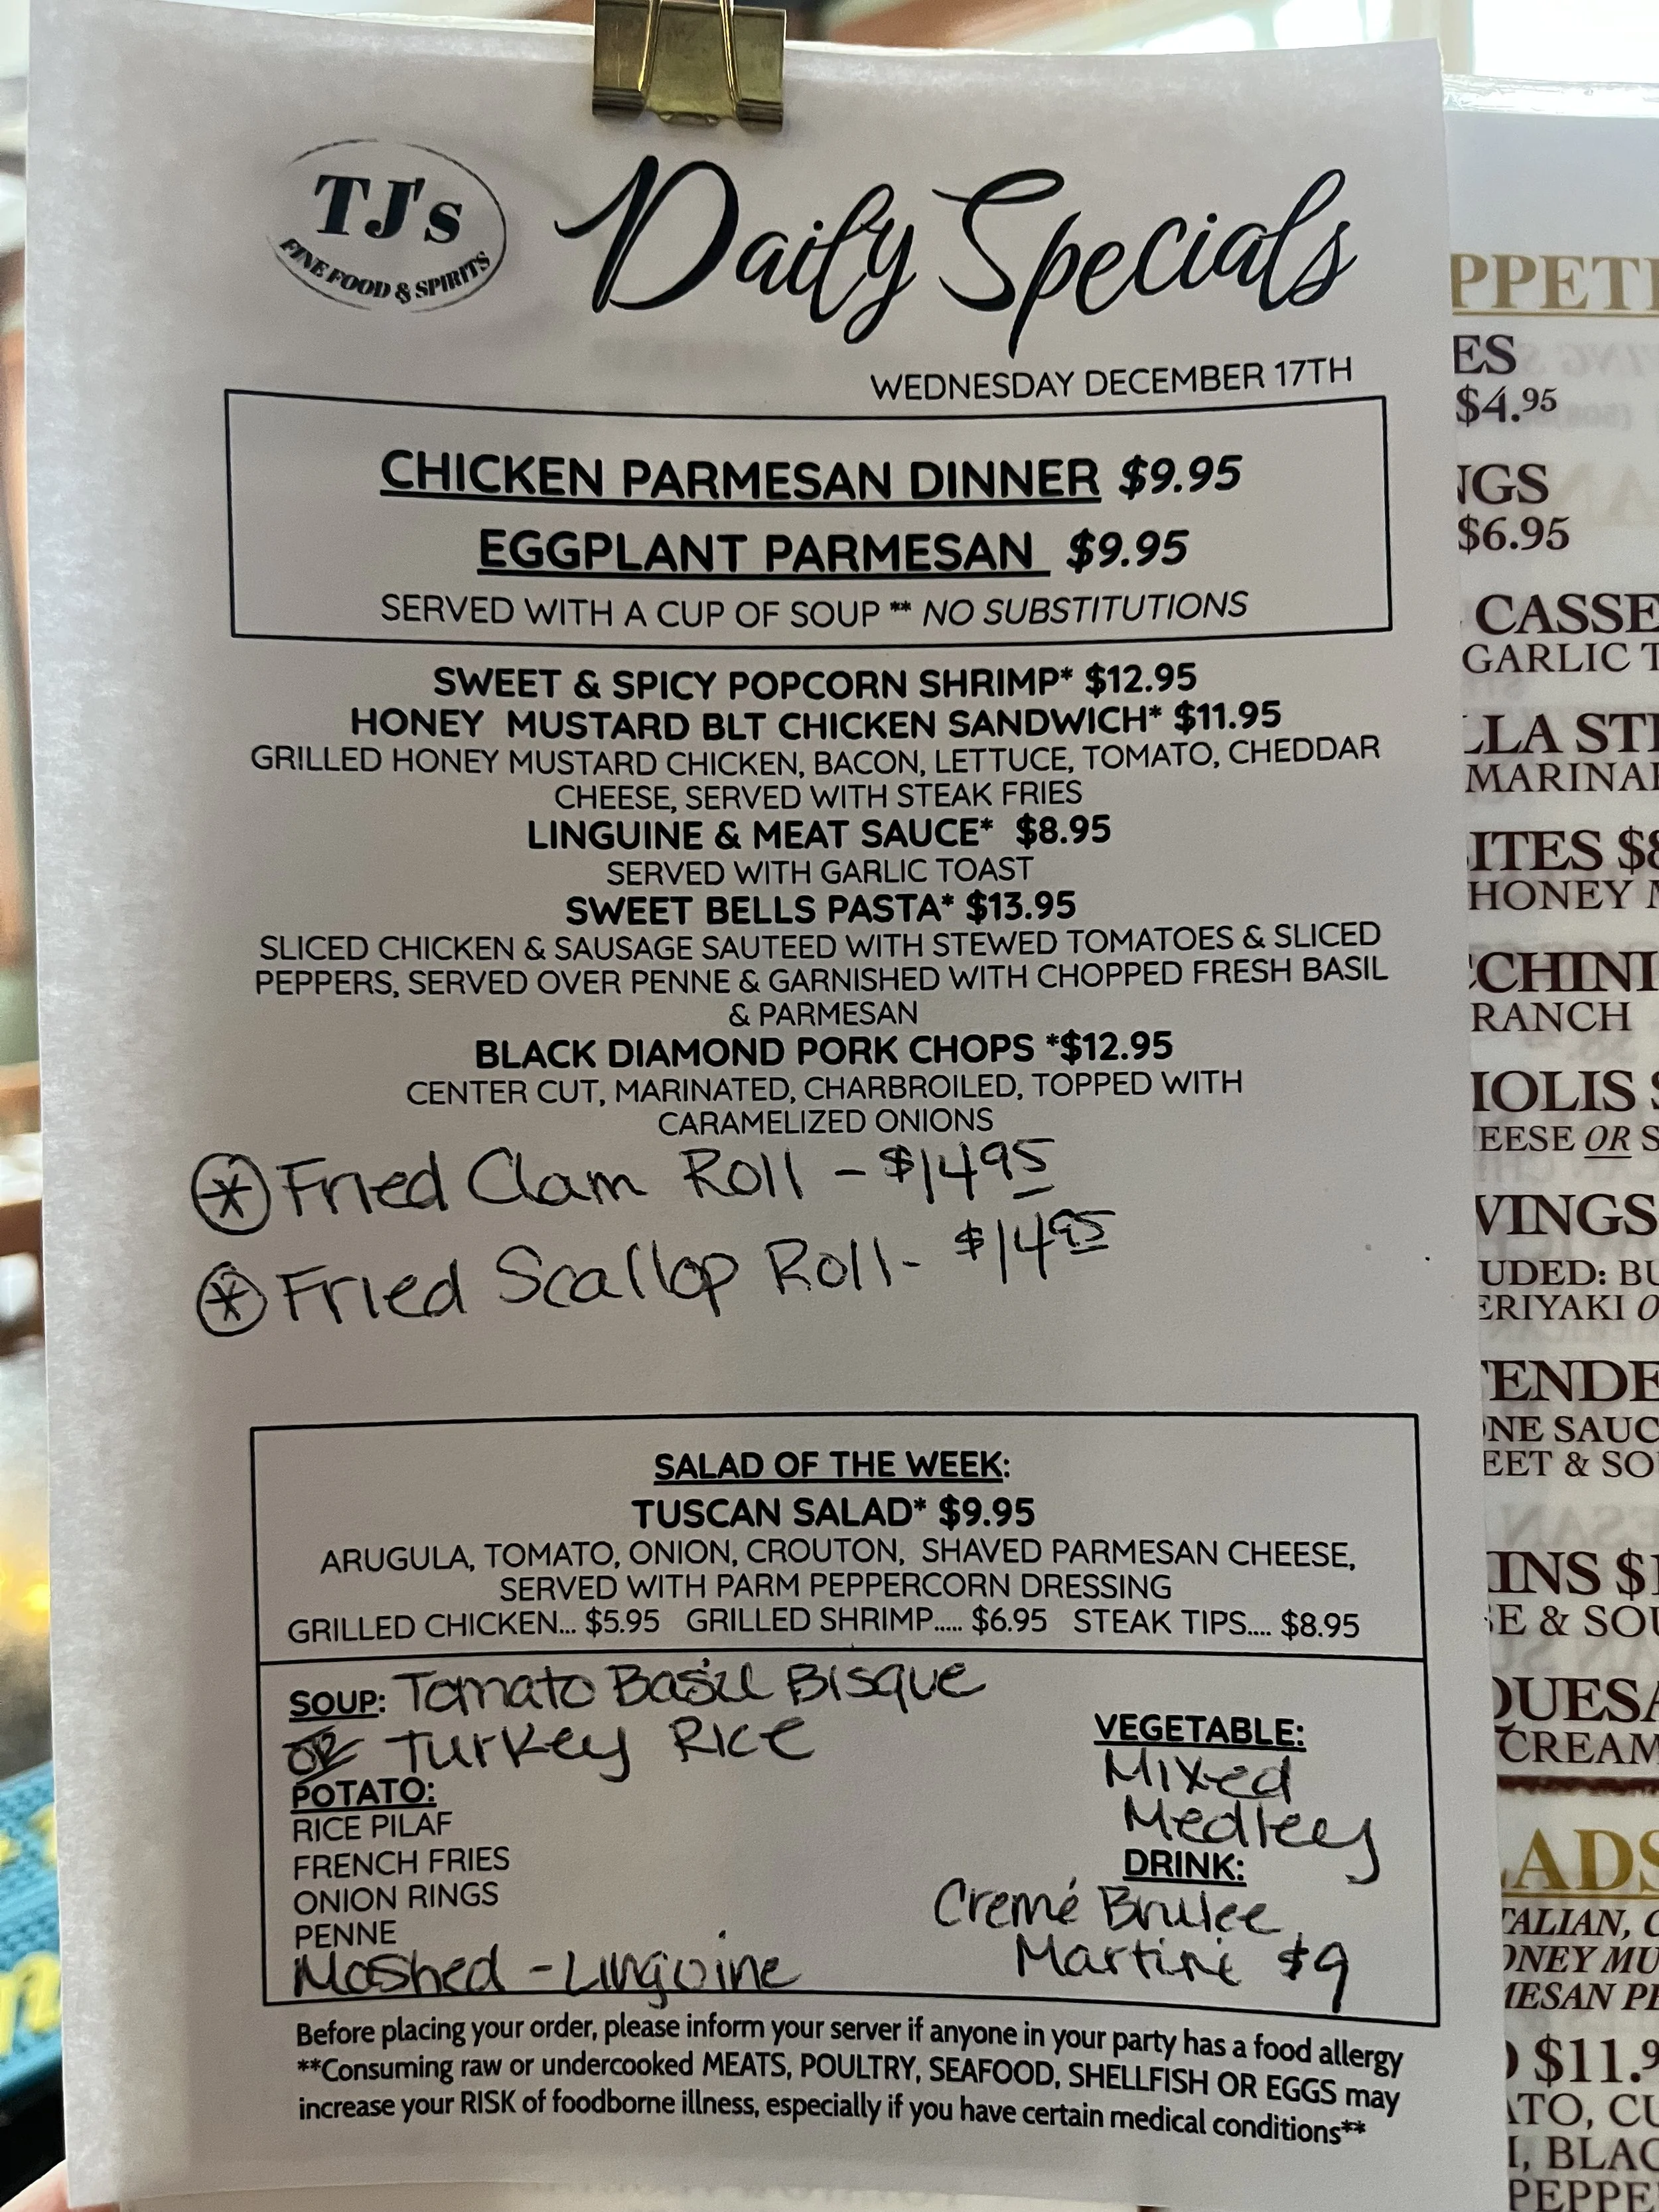 TJ's
FINE FOOD & SPIRITS
Daily Specials
WEDNESDAY DECEMBER 17TH
CHICKEN PARMESAN DINNER $9.95
EGGPLANT PARMESAN $9.95
SERVED WITH A CUP OF SOUP ** NO SUBSTITUTIONS
SWEET & SPICY POPCORN SHRIMP* $12.95
HONEY MUSTARD BLT CHICKEN SANDWICH* $11.95
GRILLED HONEY MUSTARD CHICKEN, BACON, LETTUCE, TOMATO, CHEDDAR
CHEESE, SERVED WITH STEAK FRIES
LINGUINE & MEAT SAUCE* $8.95
SERVED WITH GARLIC TOAST
SWEET BELLS PASTA* $13.95
SLICED CHICKEN & SAUSAGE SAUTEED WITH STEWED TOMATOES & SLICED
PEPPERS, SERVED OVER PENNE & GARNISHED WITH CHOPPED FRESH BASIL
& PARMESAN
BLACK DIAMOND PORK CHOPS *$12.95
CENTER CUT, MARINATED, CHARBROILED, TOPPED WITH
CARAMELIZED ONIONS
* Fried Clam Roll - $14 95
* Fried Scallop Roll - $14 95
SALAD OF THE WEEK:
TUSCAN SALAD* $9.95
ARUGULA, TOMATO, ONION, CROUTON, SHAVED PARMESAN CHEESE,
SERVED WITH PARM PEPPERCORN DRESSING
GRILLED CHICKEN... $5.95 GRILLED SHRIMP..... $6.95 STEAK TIPS.... $8.95
SOUP: Tomato Basil Bisque
OR Turkey Rice
POTATO:
RICE PILAF
FRENCH FRIES
ONION RINGS
PENNE
Mashed - Linguine
VEGETABLE:
Mixed
Medley
DRINK:
Cremé Brulee
Martini $9
Before placing your order, please inform your server if anyone in your party has a food allergy
**Consuming raw or undercooked MEATS, POULTRY, SEAFOOD, SHELLFISH OR EGGS may
increase your RISK of foodborne illness, especially if you have certain medical conditions**
PPETI
ES
$4.95
NGS
$6.95
CASSE
GARLIC T
LLA STI
MARINA
ITES $8
HONEY M
CCHINI
RANCH
IOLIS $
EESE OR S
WINGS
UDED: BU
ERIYAKI O
TENDE
ONE SAUC
EET & SO
INS $1
SE & SOU
QUESA
CREAM
LADS
TALIAN, C
ONEY MU
MESAN PE
$11.9
ATO, CU
I, BLAC
PEPPE